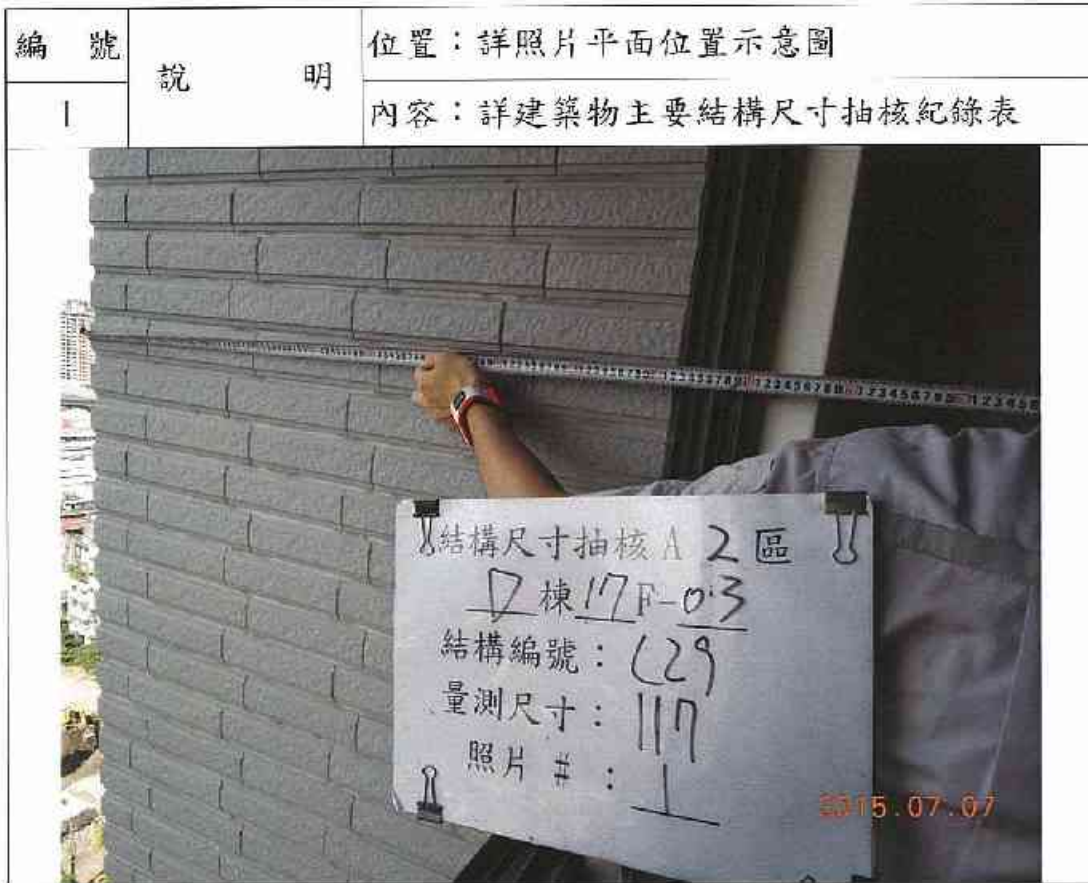 編 號
說 明
位置：詳照片平面位置示意圖
1
內容：詳建築物主要結構尺寸抽核紀錄表
結構尺寸抽核 A 2 區
D 棟 17 F-03
結構編號：C29
量測尺寸：117
照片 #：1
2015.07.07